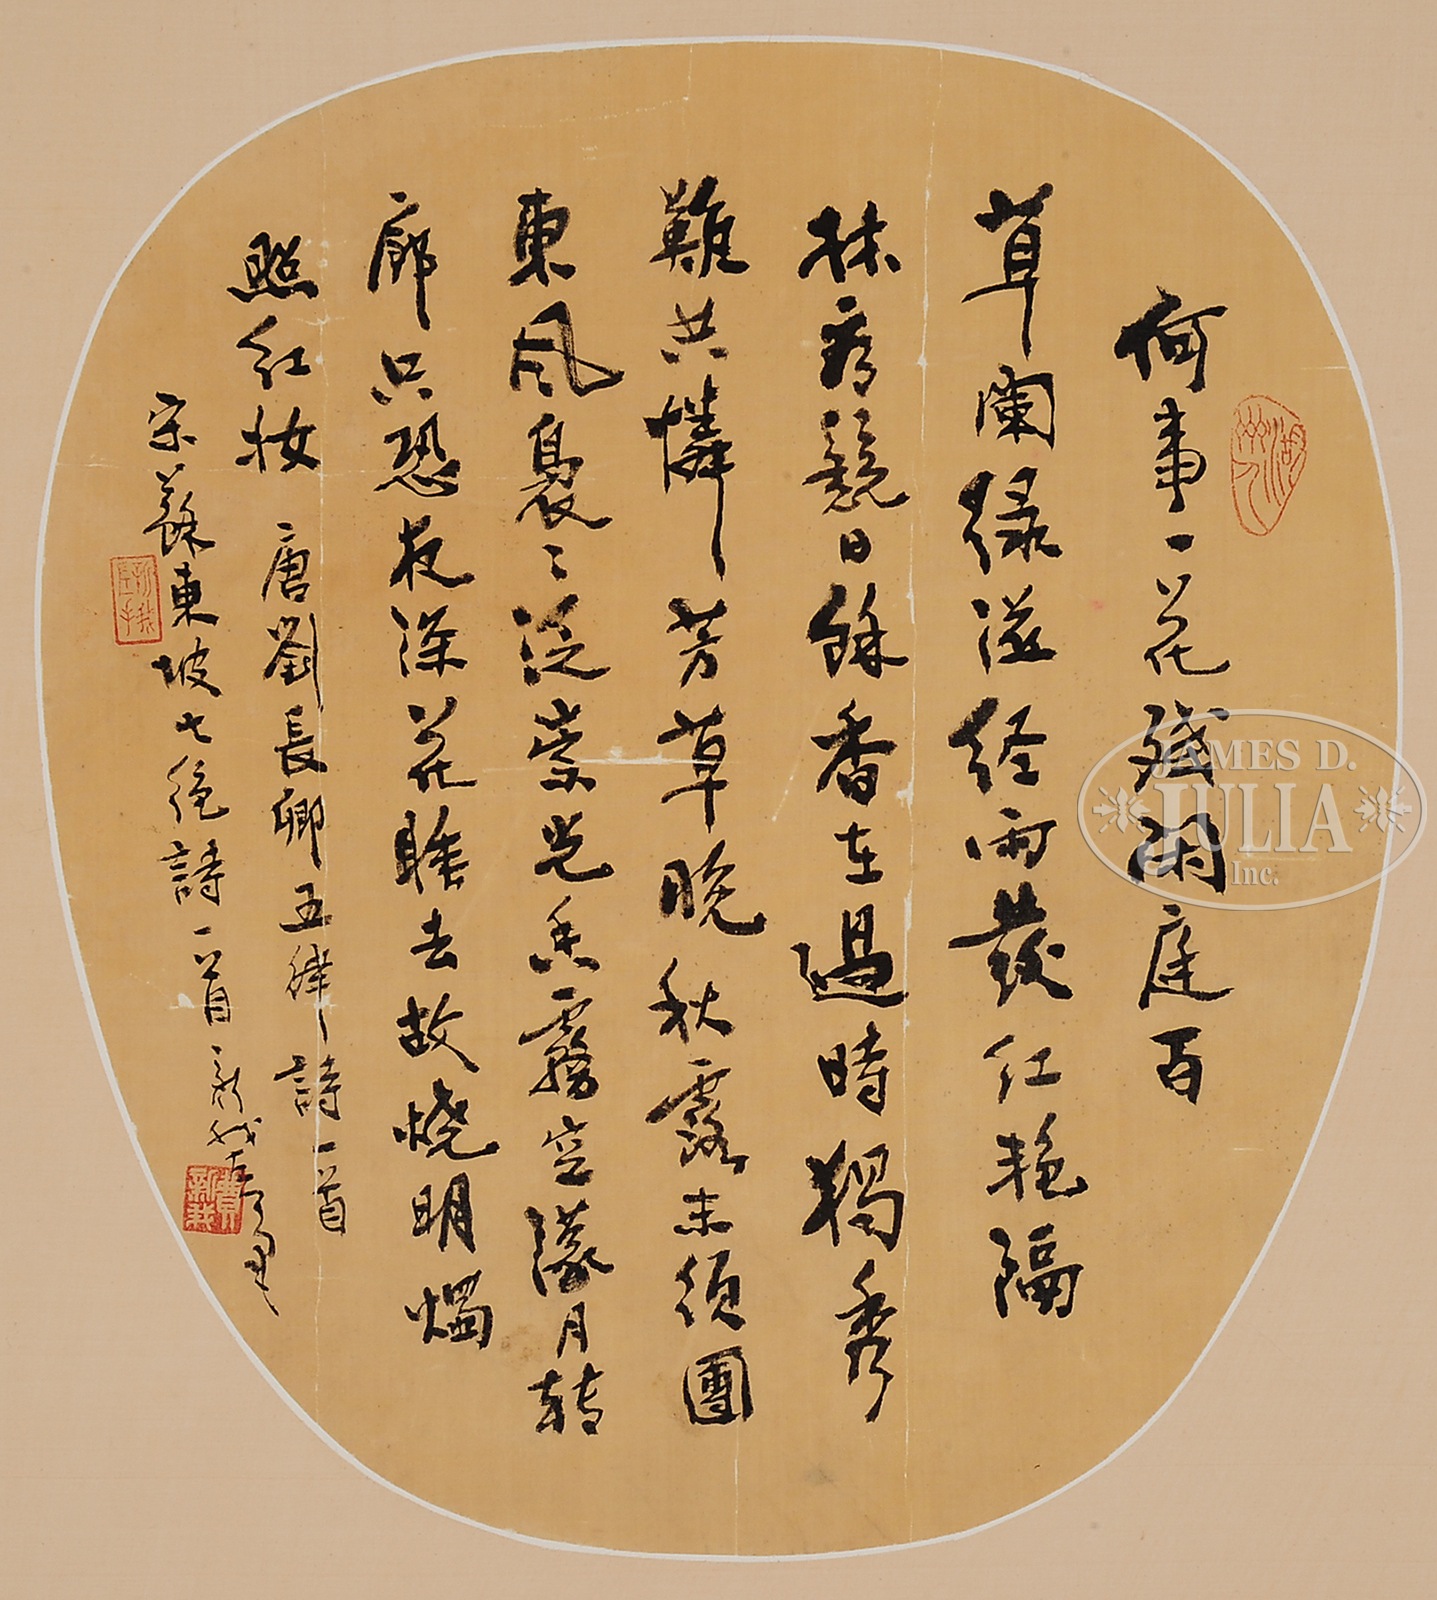 何事一花殘閑庭百
草闌綠滋經雨發紅艷隔
林看競日餘香在過時獨秀
難共憐芳草晚秋露未須團
東風裊〻泛崇光香霧空濛月轉
廊只恐夜深花睡去故燒明燭
照紅妝
唐劉長卿五律詩一首
宋蘇東坡七絕詩一首 新我左筆
費新我
JAMES D.
JULIA
Inc.